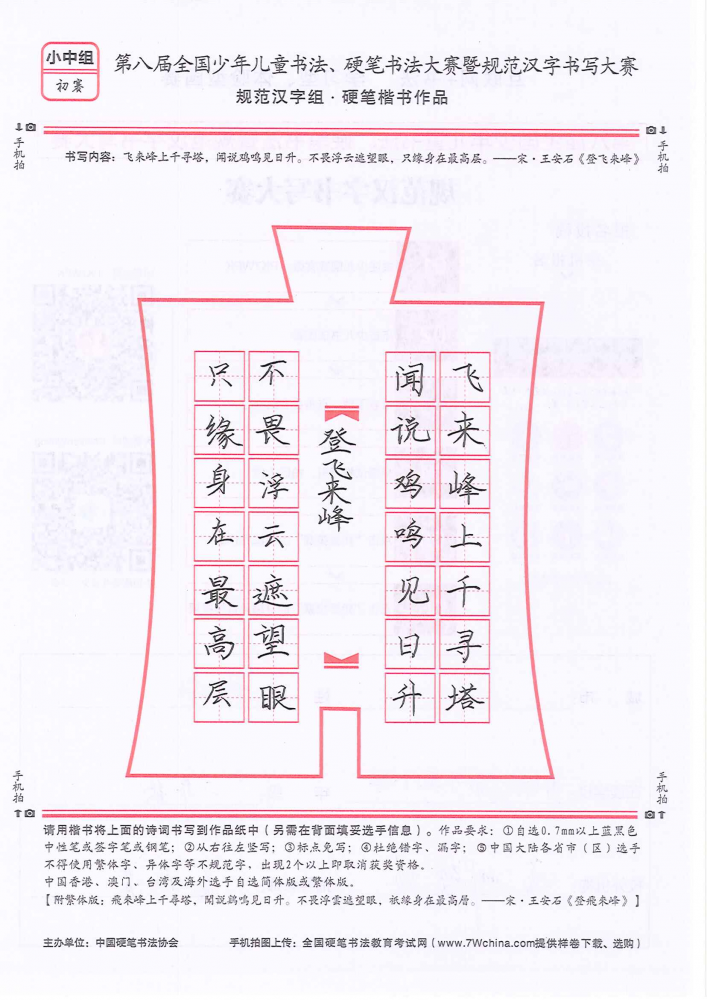 小中组
初赛
第八届全国少年儿童书法、硬笔书法大赛暨规范汉字书写大赛
规范汉字组·硬笔楷书作品
手机拍
手机拍
书写内容：飞来峰上千寻塔，闻说鸡鸣见日升。不畏浮云遮望眼，只缘身在最高层。——宋·王安石《登飞来峰》
飞来峰上千寻塔
闻说鸡鸣见日升
登飞来峰
不畏浮云遮望眼
只缘身在最高层
手机拍
手机拍
请用楷书将上面的诗词书写到作品纸中（另需在背面填妥选手信息）。作品要求：①自选0.7mm以上蓝黑色
中性笔或签字笔或钢笔；②从右往左竖写；③标点免写；④杜绝错字、漏字；⑤中国大陆各省市（区）选手
不得使用繁体字、异体字等不规范字，出现2个以上即取消获奖资格。
中国香港、澳门、台湾及海外选手自选简体版或繁体版。
【附繁体版：飛来峰上千尋塔，聞說鷄鳴見日升。不畏浮雲遮望眼，衹緣身在最高層。——宋·王安石《登飛来峰》】
主办单位：中国硬笔书法协会
手机拍图上传：全国硬笔书法教育考试网（www.7Wchina.com提供样卷下载、选购）